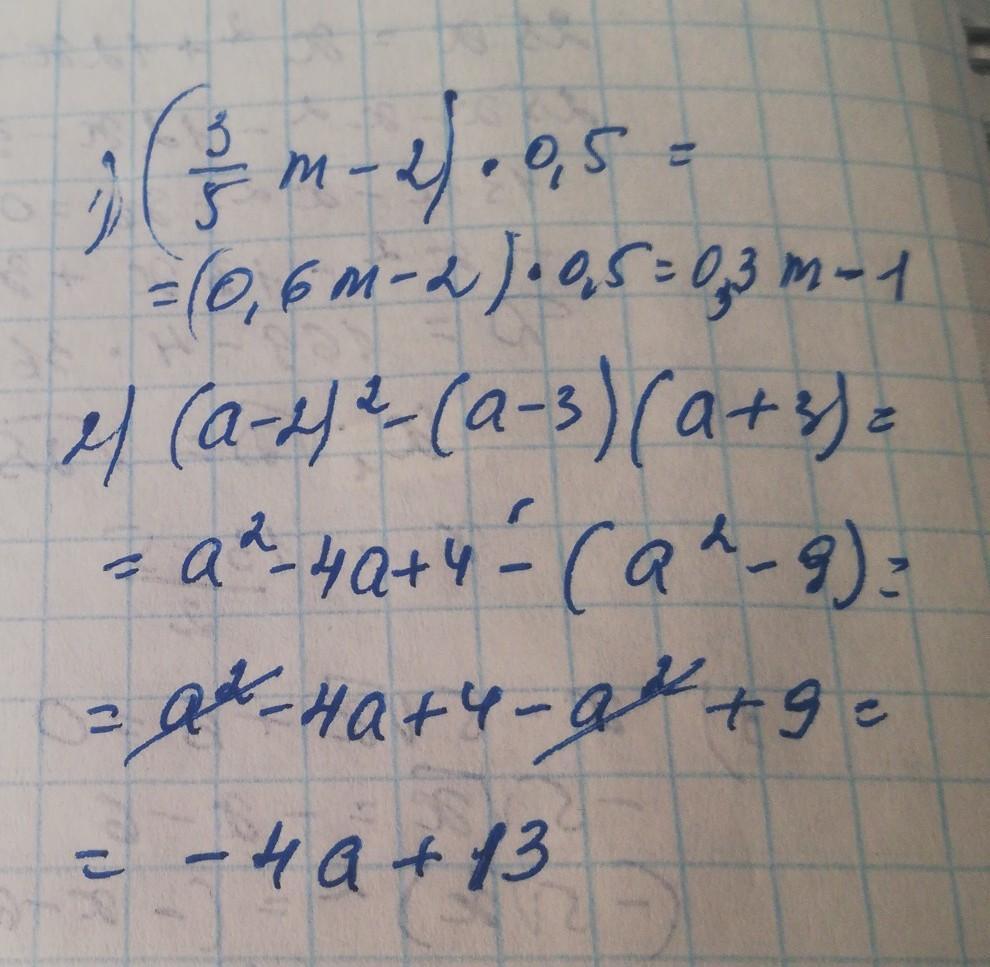 1) (3/5 m - 2) · 0,5 =
= (0,6m - 2) · 0,5 = 0,3m - 1
2) (a - 2)² - (a - 3)(a + 3) =
= a² - 4a + 4 - (a² - 9) =
= a² - 4a + 4 - a² + 9 =
= - 4a + 13